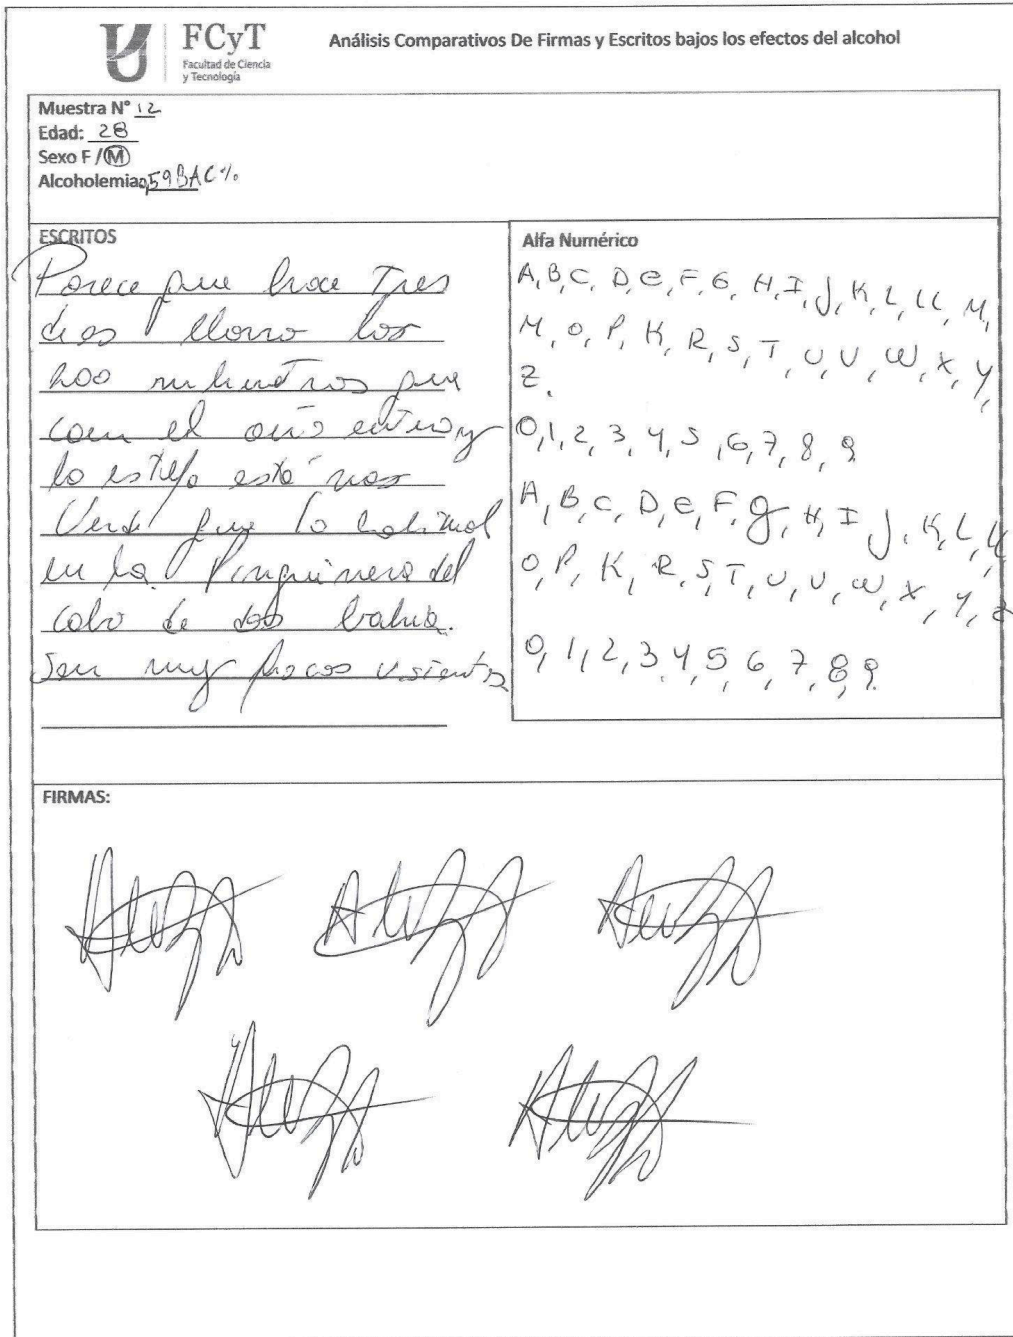 FCyT
Facultad de Ciencia
y Tecnología
Análisis Comparativos De Firmas y Escritos bajos los efectos del alcohol
Muestra N° 12
Edad: 28
Sexo F / M
Alcoholemia 0,59 BAC %
ESCRITOS
Parece que hace Tres
dias llorro los
200 que
com el año entro y
la está mas
Verde que lo habitual
en la Pinguinera del
cabo de dos bahia.
Son muy pocos
Alfa Numérico
A, B, C, D, e, F, G, H, I, J, K, L, LL, M,
M, O, P, K, R, S, T, U, U, W, X, Y,
Z.
0, 1, 2, 3, 4, 5, 6, 7, 8, 9
A, B, C, D, e, F, g, H, I, J, K, L, LL
O, P, K, R, S, T, U, U, W, X, Y, Z
0, 1, 2, 3, 4, 5, 6, 7, 8, 9.
FIRMAS: